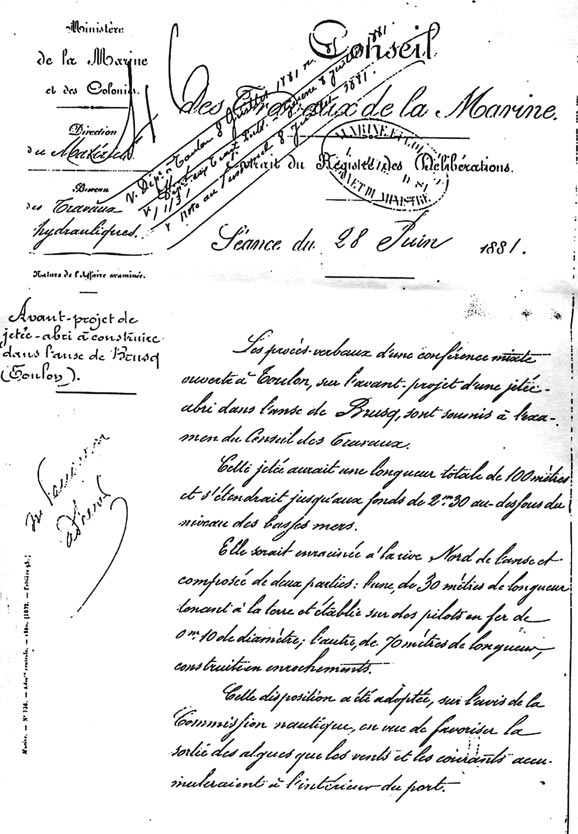 Ministère
de la Marine
et des Colonies
Direction
du Matériel
Bureau
des Travaux
hydrauliques.
Nature de l'Affaire examinée.
Avant-projet de
jetée-abri à construire
dans l'anse de Brusq
(Toulon).
Conseil
des Travaux de la Marine.
Extrait du Registre des Délibérations.
MARINE ET
DU MINISTRE
Séance du 28 Juin 1881.
V. Dépêche Toulon 8 Juillet 1881
8 Juillet 1881
8 Juillet 1881.
Les procès-verbaux d'une conférence mixte
ouverte à Toulon, sur l'avant-projet d'une jetée-
abri dans l'anse de Brusq, sont soumis à l'exa-
men du Conseil des Travaux.
Cette jetée aurait une longueur totale de 100 mètres
et s'étendrait jusqu'aux fonds de 2m30 au-dessous du
niveau des basses mers.
Elle serait enracinée à la rive Nord de l'anse et
composée de deux parties: l'une, de 30 mètres de longueur
tenant à la terre et établie sur des pilots en fer de
0m10 de diamètre; l'autre, de 70 mètres de longueur,
construite en enrochements.
Cette disposition a été adoptée, sur l'avis de la
Commission nautique, en vue de favoriser la
sortie des algues que les vents et les courants accu-
muleraient à l'intérieur du port.